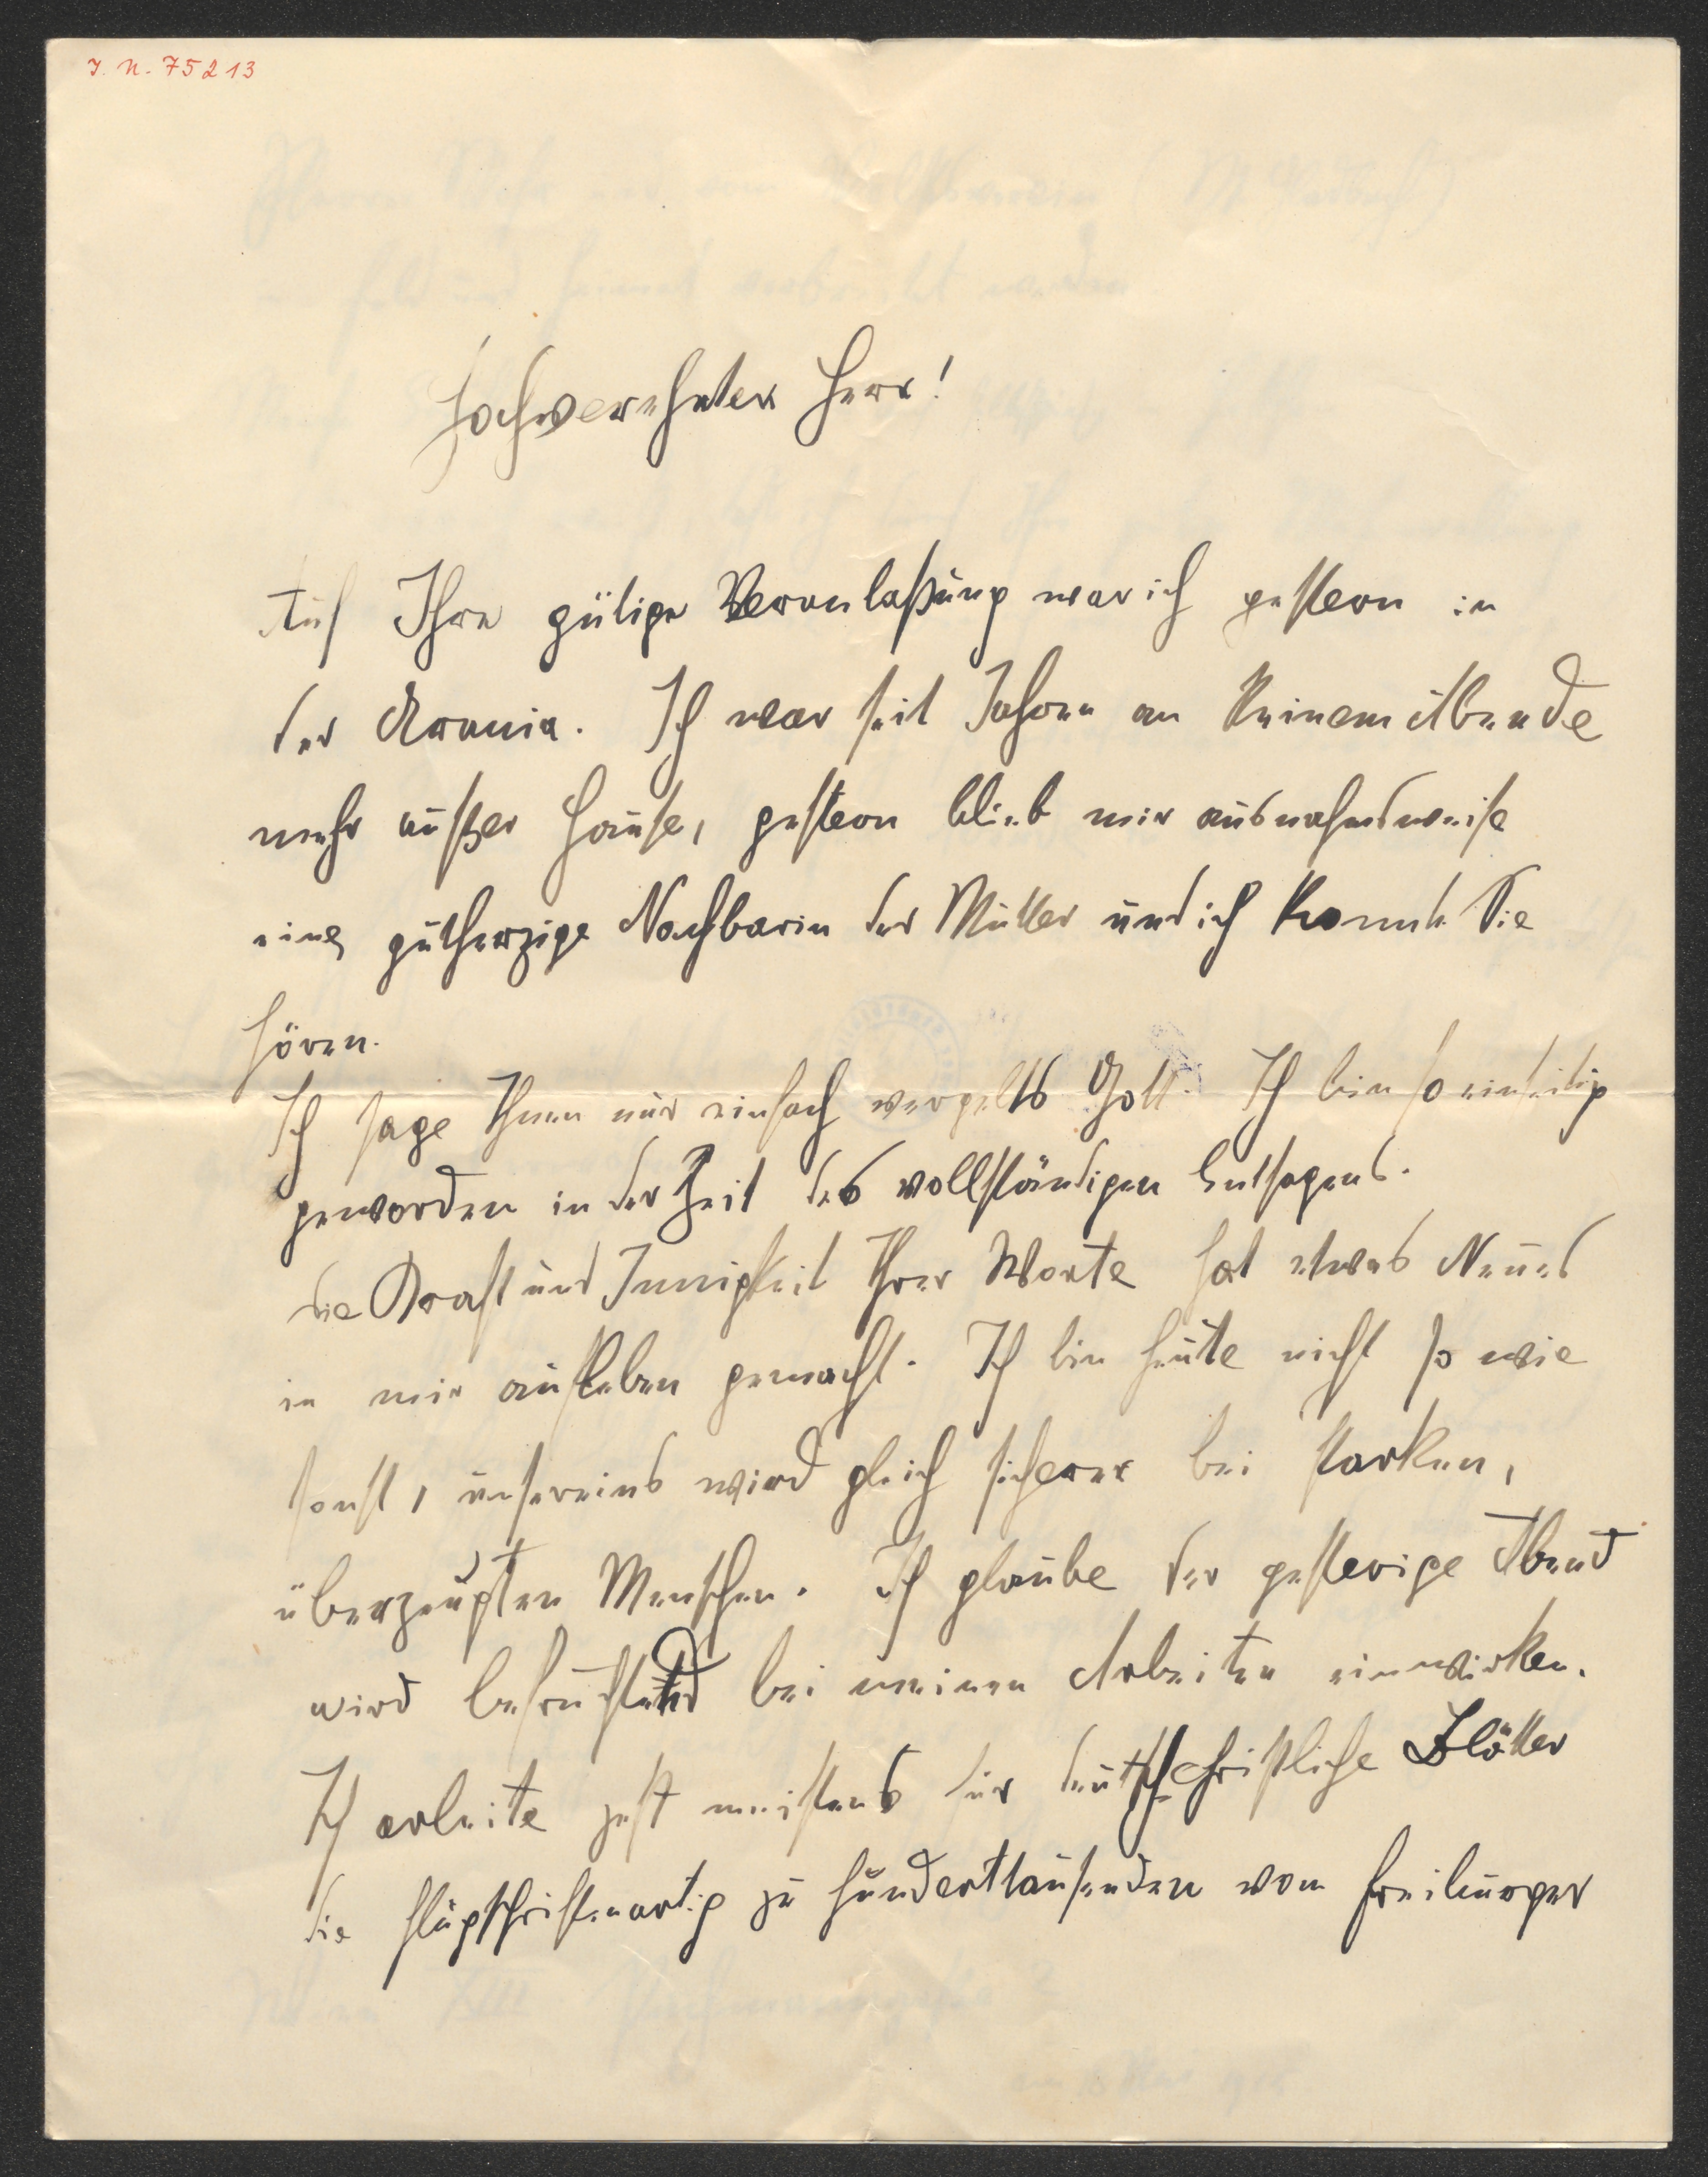 I. N. 75213
Hochverehrter Herr!
Auf Ihre gütige Veranlaßung war ich gestern in
der Urania. Ich war seit Jahren an keinem Abende
mehr außer Hause, gestern blieb mir ausnahmsweise
eine gutherzige Nachbarin der Mutter und ich konnte Sie
hören.
Ich sage Ihnen nur einfach vergelts Gott. Ich bin so einseitig
geworden in der Zeit des vollständigen Entsagens.
die Kraft und Innigkeit Ihrer Worte hat etwas Neues
in mir aufleben gemacht. Ich bin heute nicht so wie
sonst, unsereins wird gleich sicherer bei starken,
überzeugten Menschen. Ich glaube der gestrige Abend
wird befruchtend bei meinen Arbeiten einwirken.
Ich arbeite jetzt meistens für deutsch-christliche Blätter
die flugschriftenartig zu hunderttausenden vom Freiburger